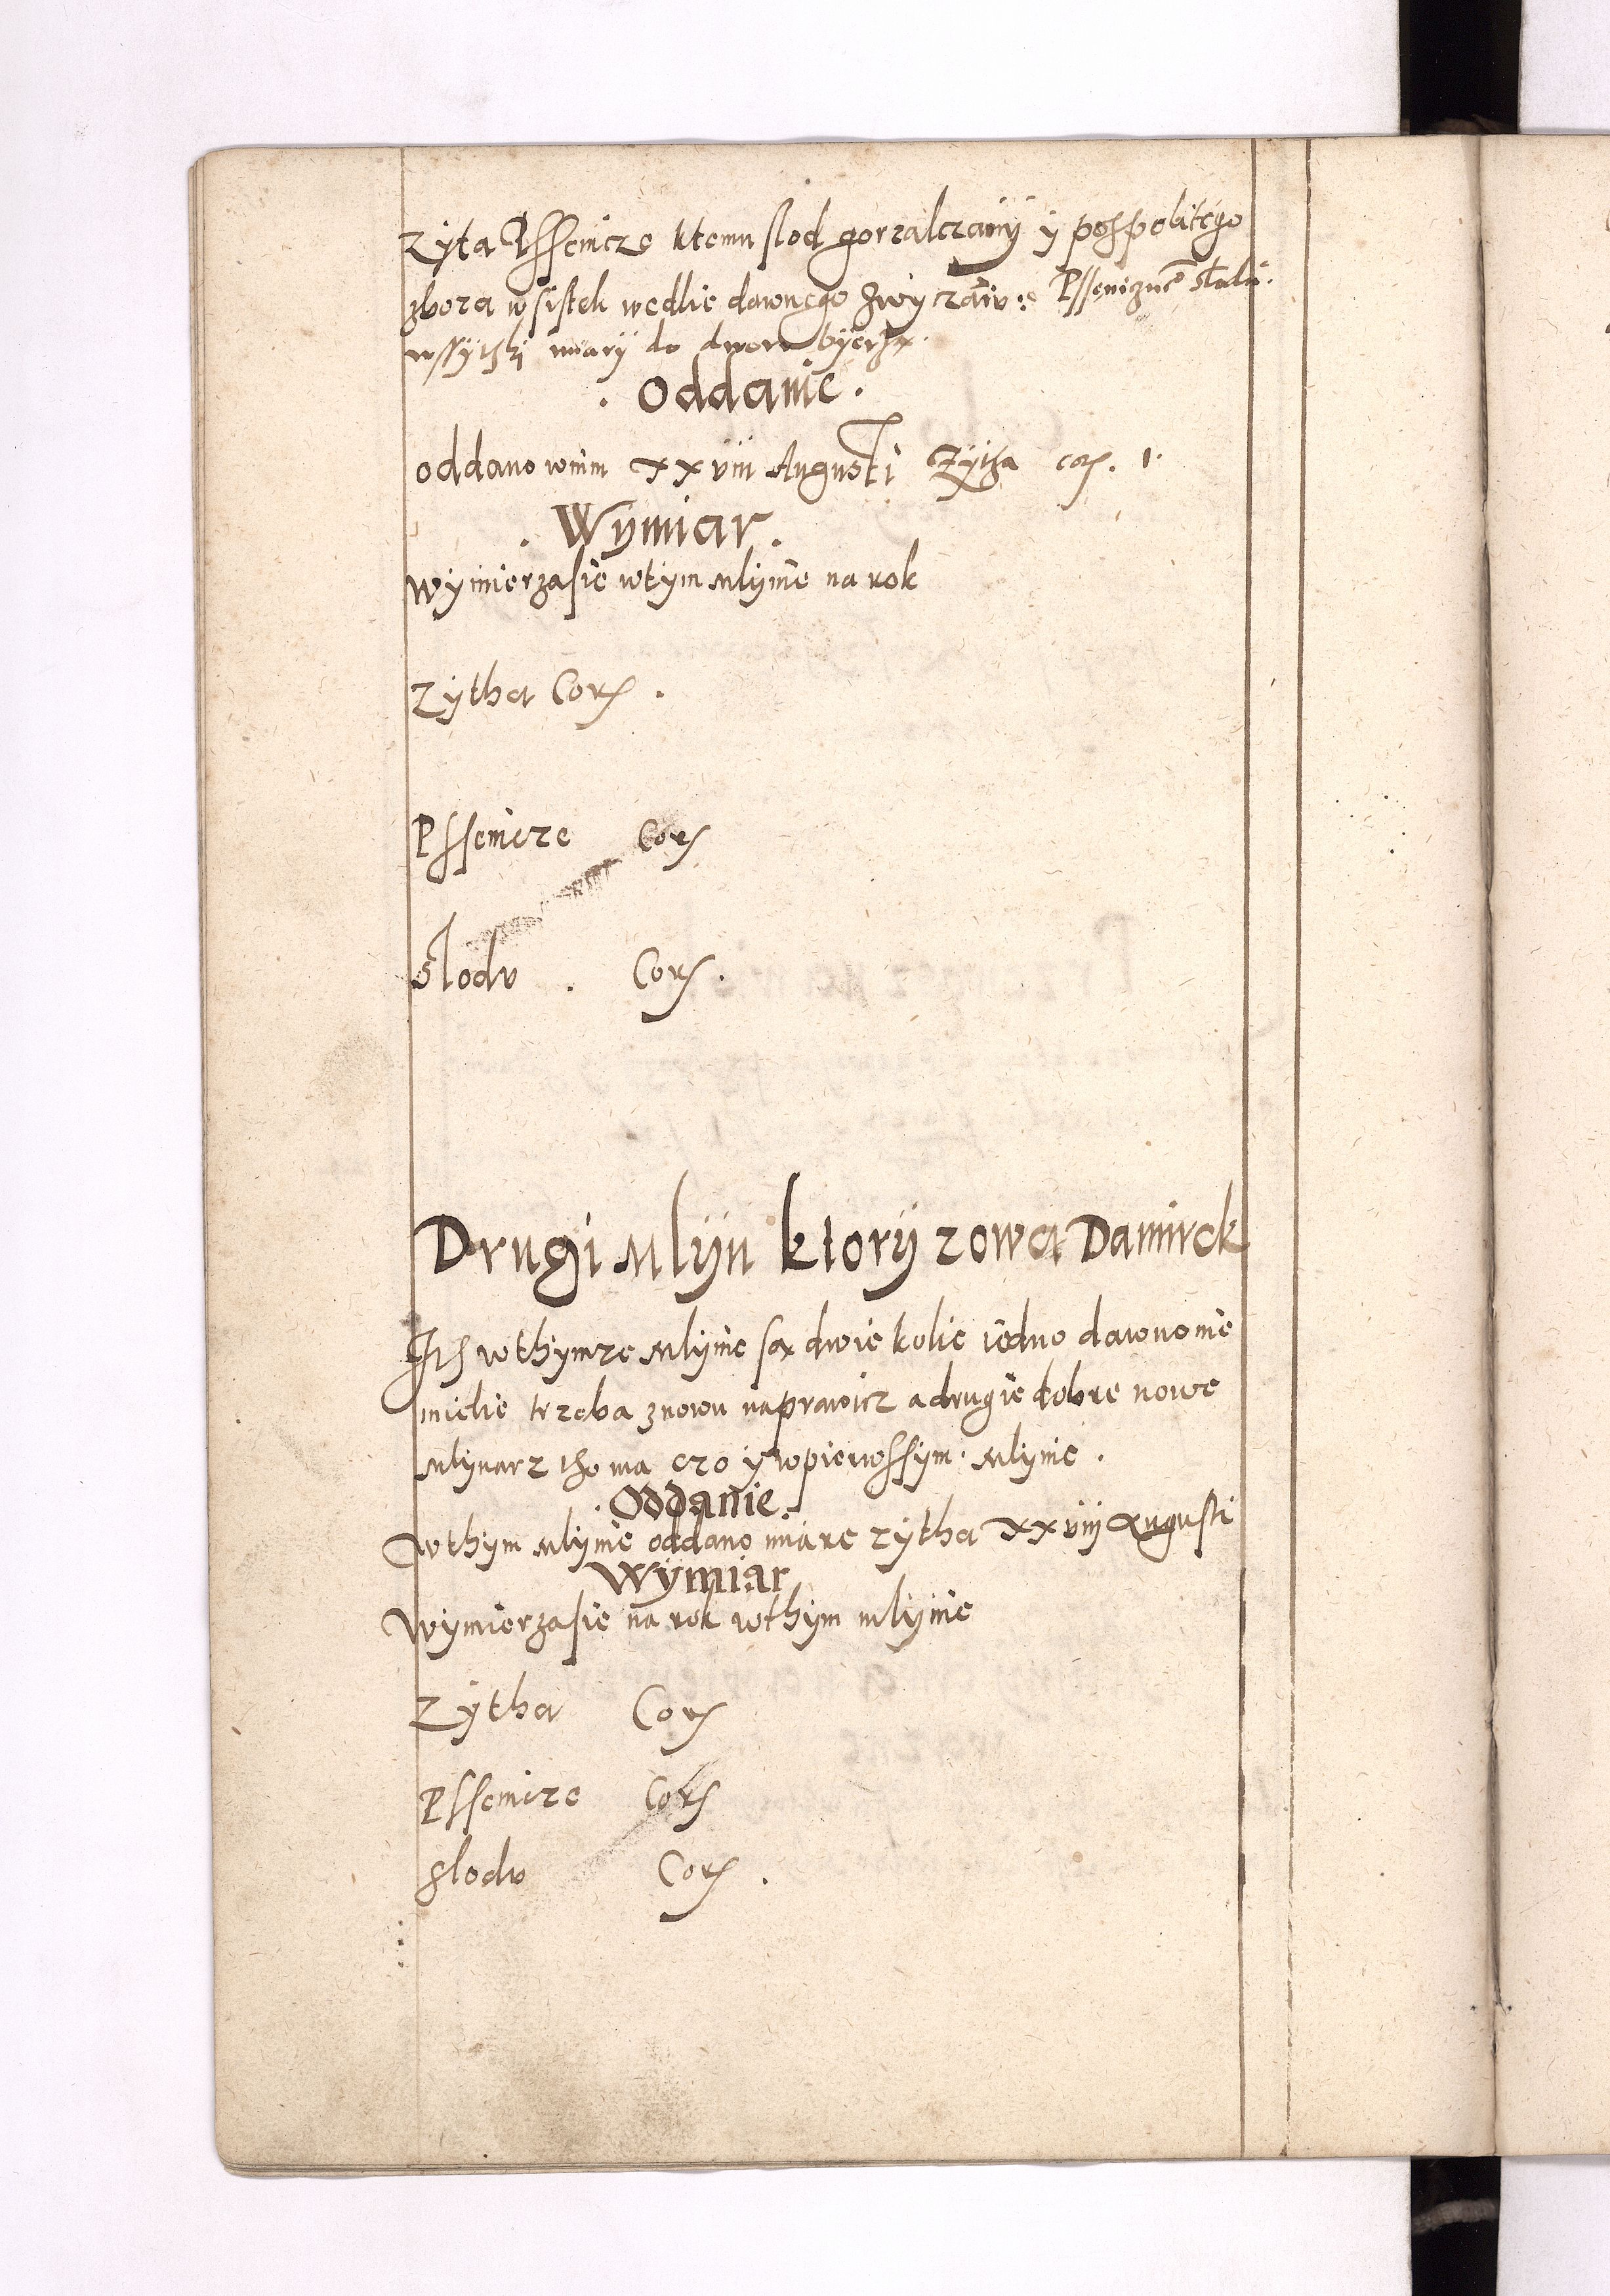 Zyta Pssenicze ktemu slod gorzalczany y pospolitego
zbora wsistek wedlie dawnego zwyczaiv
wssytzki miary do dwora byerzą.
. Oddanie .
oddano wnim xxviii Augusti Zytha cor. 1.
. Wymiar .
Wymierzasie wtym mlynie na rok
Zytha Cor .
Pssenicze Cor
Slodu . Cor .
Drugi mlyn ktory zowa Damirek
wthymze mlynie są dwie kolie iedno dawno nie
mielie trzeba znowu naprawicz adrugie dobre nowe
mlynarz tho ma czo y wpierwssym mlynie .
. Oddanie .
wthym mlynie oddano miare zytha xxviij Augusti
Wymiar
Wymierzasie na rok wthym mlynie
Zytha Cor
Pssenicze Cor
Slodu Cor .